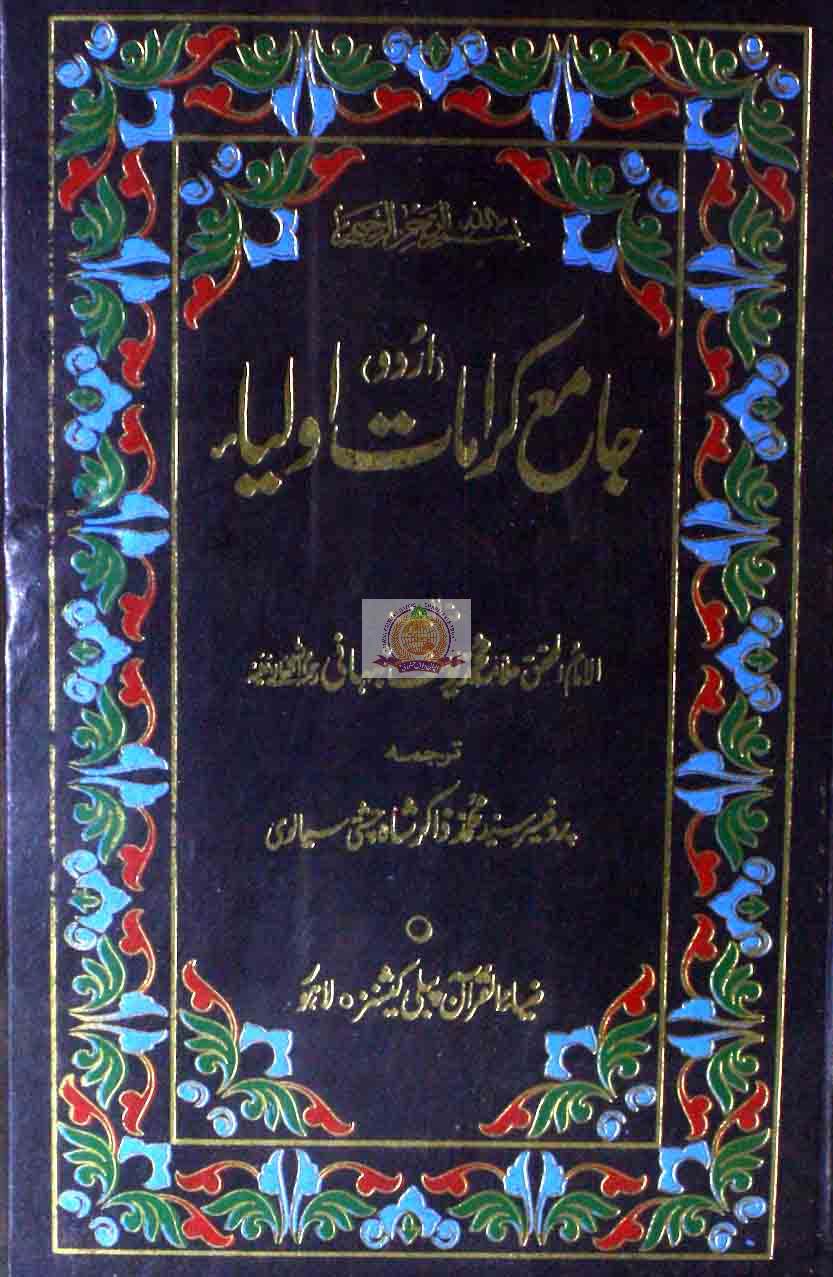 بسم الله الرحمن الرحيم
(اُردو)
جامع کراماتِ اولیاء
الامام المحقق علامہ محمد نبہانی رحمۃ اللہ علیہ
ترجمہ
پروفیسر سید محمد ذاکر شاہ چشتی سیالوی
ضیاء القرآن پبلی کیشنز ○ لاہور